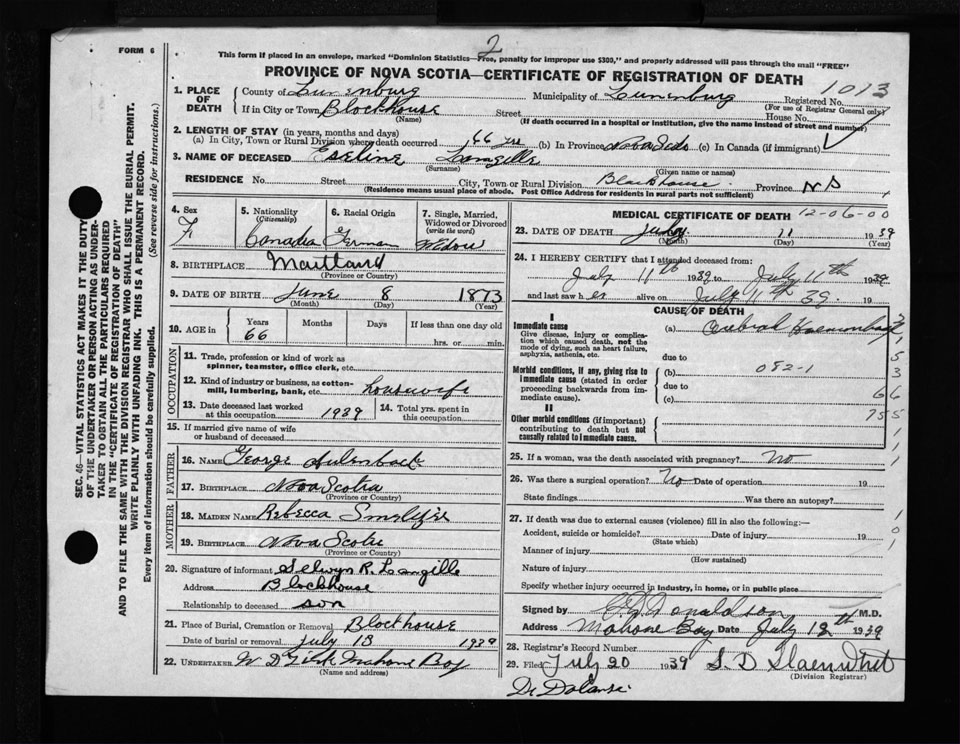 2
FORM 6
This form if placed in an envelope, marked "Dominion Statistics—Free, penalty for improper use $300," and properly addressed will pass through the mail "FREE"
PROVINCE OF NOVA SCOTIA—CERTIFICATE OF REGISTRATION OF DEATH
1013
1. PLACE OF DEATH County of Lunenburg Municipality of Lunenburg Registered No.
(For use of Registrar General only)
If in City or Town Blockhouse Street House No.
(Name) (If death occurred in a hospital or institution, give the name instead of street and number)
2. LENGTH OF STAY (in years, months and days)
(a) In City, Town or Rural Division where death occurred 66 yrs (b) In Province Nova Scotia (c) In Canada (if immigrant)
3. NAME OF DECEASED Eseline Langille
(Surname) (Given name or names)
RESIDENCE No. Street City, Town or Rural Division Blockhouse Province N S
(Residence means usual place of abode. Post Office Address for residents in rural parts not sufficient)
4. Sex
F
5. Nationality
(Citizenship)
Canadia
6. Racial Origin
German
7. Single, Married, Widowed or Divorced
(write the word)
Widow
8. BIRTHPLACE Maitland
(Province or Country)
9. DATE OF BIRTH June 8 1873
(Month) (Day) (Year)
10. AGE in Years Months Days If less than one day old
66 hrs. or min.
OCCUPATION
11. Trade, profession or kind of work as spinner, teamster, office clerk, etc.
12. Kind of industry or business, as cotton-mill, lumbering, bank, etc. housewife
13. Date deceased last worked at this occupation 1939
14. Total yrs. spent in this occupation
15. If married give name of wife or husband of deceased
FATHER
16. NAME George Aulenback
17. BIRTHPLACE Nova Scotia
(Province or Country)
MOTHER
18. MAIDEN NAME Rebecca
19. BIRTHPLACE Nova Scotia
(Province or Country)
20. Signature of informant Selwyn R. Langille
Address Blockhouse
Relationship to deceased son
21. Place of Burial, Cremation or Removal Blockhouse
Date of burial or removal July 13 1939
22. UNDERTAKER W D Mahone Bay
(Name and address)
MEDICAL CERTIFICATE OF DEATH 12-06-00
23. DATE OF DEATH July 11 1939
(Month) (Day) (Year)
24. I HEREBY CERTIFY that I attended deceased from:
July 11th 1939 to July 11th 1939
and last saw her alive on July 11th 39. 19
CAUSE OF DEATH
I
Immediate cause
Give disease, injury or complication which caused death, not the mode of dying, such as heart failure, asphyxia, asthenia, etc.
(a) Cerebral Haemorrhage
due to
Morbid conditions, if any, giving rise to immediate cause (stated in order proceeding backwards from immediate cause).
(b) 082-1
due to
(c)
II
Other morbid conditions (if important) contributing to death but not causally related to immediate cause.
25. If a woman, was the death associated with pregnancy? No
26. Was there a surgical operation? No Date of operation 19
State findings Was there an autopsy?
27. If death was due to external causes (violence) fill in also the following:—
Accident, suicide or homicide? Date of injury 19
(State which)
Manner of injury
(How sustained)
Nature of injury
Specify whether injury occurred in industry, in home, or in public place
Signed by Donaldson M.D.
Address Mahone Bay Date July 12th 1939
28. Registrar's Record Number
29. Filed July 20 1939 S. D
(Division Registrar)
SEC. 46—VITAL STATISTICS ACT MAKES IT THE DUTY OF THE UNDERTAKER OR PERSON ACTING AS UNDERTAKER TO OBTAIN ALL THE PARTICULARS REQUIRED IN THE "CERTIFICATE OF REGISTRATION OF DEATH"
AND TO FILE THE SAME WITH THE DIVISION REGISTRAR WHO SHALL ISSUE THE BURIAL PERMIT.
WRITE PLAINLY WITH UNFADING INK. THIS IS A PERMANENT RECORD.
Every item of information should be carefully supplied. (See reverse side for instructions.)